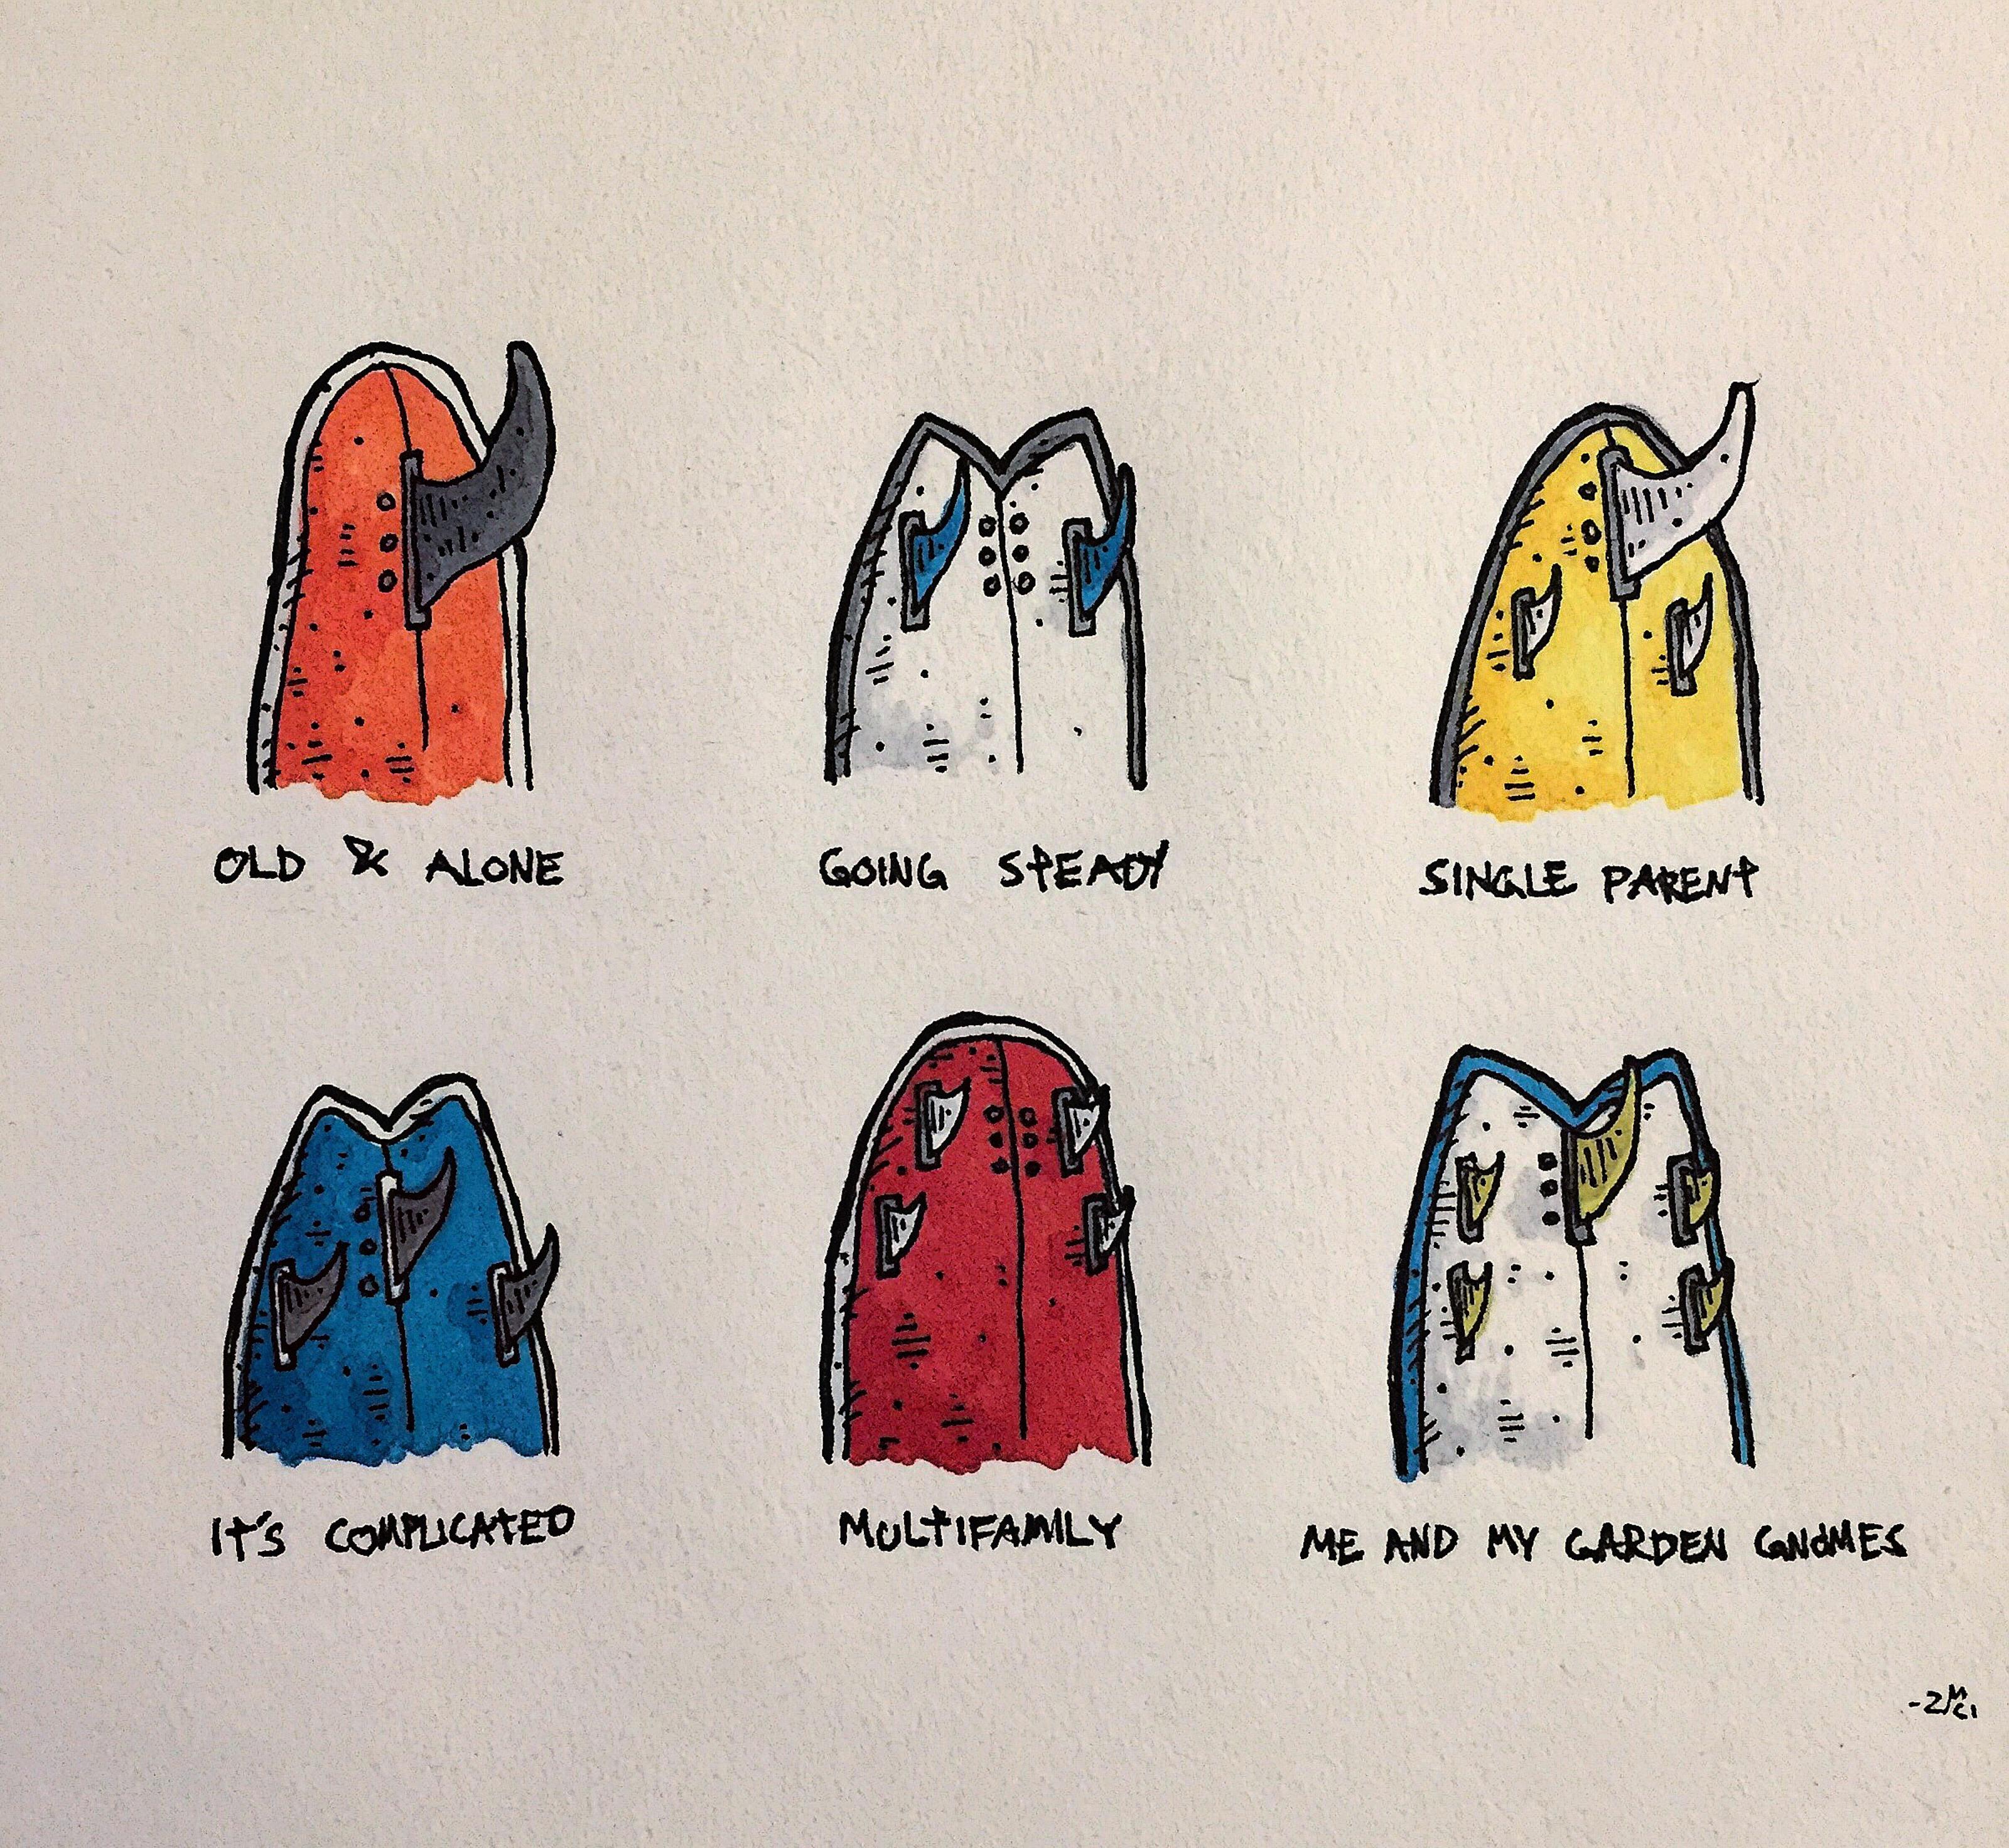 OLD & ALONE
GOING STEADY
SINGLE PARENT
IT'S COMPLICATED
MULTIFAMILY
ME AND MY GARDEN GNOMES